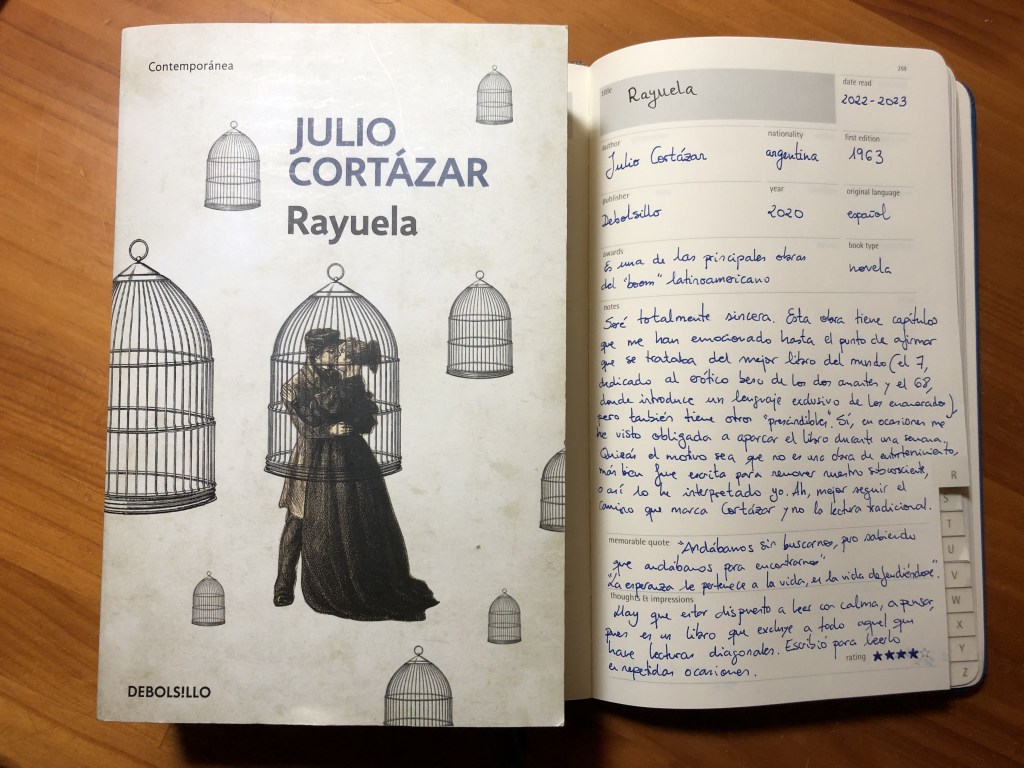 Contemporánea
JULIO
CORTÁZAR
Rayuela
DEBOLS!LLO
268
title
Rayuela
date read
2022-2023
author
nationality
first edition
Julio Cortázar
argentina
1963
publisher
year
original language
Debolsillo
2020
español
awards
book type
Es una de las principales obras
del "boom" latinoamericano
novela
notes
Seré totalmente sincera. Esta obra tiene capítulos
que me han emocionado hasta el punto de afirmar
que se trataba del mejor libro del mundo (el 7,
dedicado al erótico beso de los dos amantes y el 68,
donde introduce un lenguaje exclusivo de los enamorados)
pero también tiene otros "prescindibles". Sí, en ocasiones me
he visto obligada a aparcar el libro durante una semana.
Quizás el motivo sea que no es una obra de entretenimiento,
más bien fue escrita para remover nuestro subconsciente,
o así lo he interpretado yo. Ah, mejor seguir el
camino que marca Cortázar y no la lectura tradicional.
memorable quote
"Andábamos sin buscarnos, pero sabiendo
que andábamos para encontrarnos"
"La esperanza le pertenece a la vida, es la vida defendiéndose".
thoughts & impressions
Hay que estar dispuesto a leer con calma, a pensar,
pues es un libro que excluye a todo aquel que
hace lecturas diagonales. Escribió para leerlo
en repetidas ocasiones.
rating
R
S
T
U
V
W
X
Y
Z